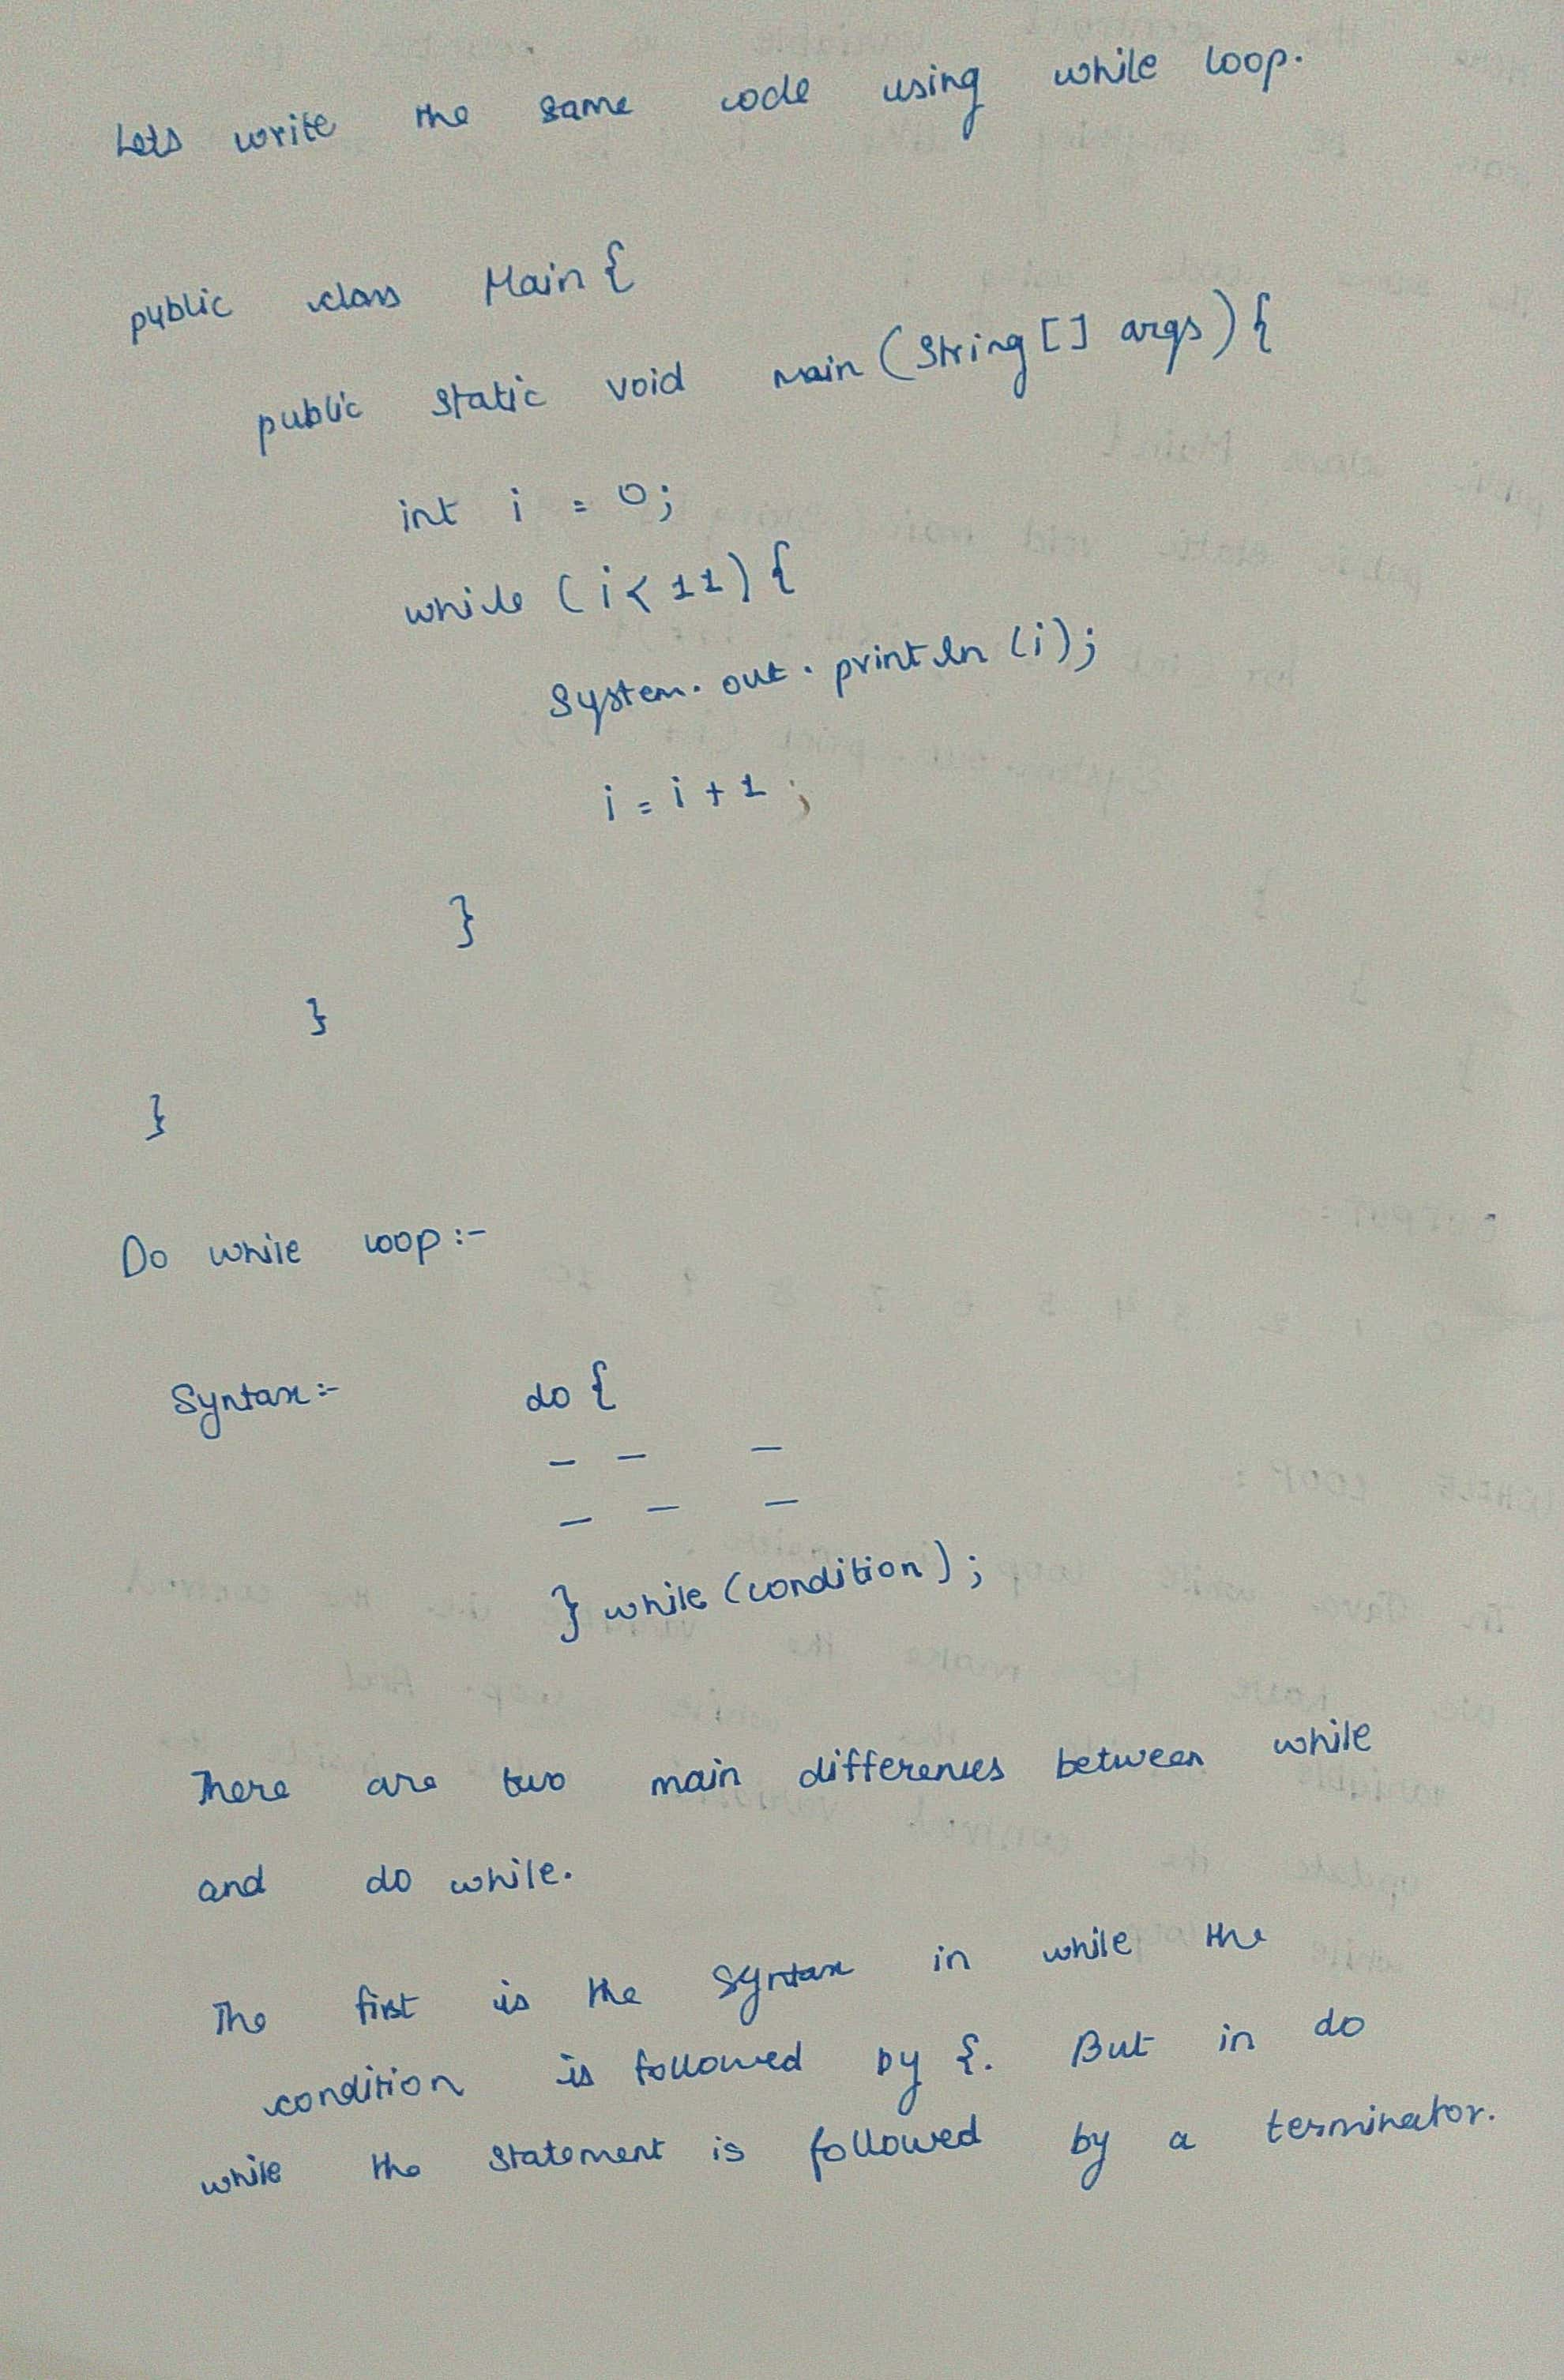 Lets write the same code using while loop.
public class Main {
public static void main (String [] args) {
int i = 0;
while (i < 11) {
System.out.println (i);
i = i + 1;
}
}
}
Do while loop :-
Syntax :- do {
_ _ _
_ _ _
} while (condition) ;
There are two main differences between while
and do while.
The first is the syntax in while the
condition is followed by {. But in do
while the statement is followed by a terminator.